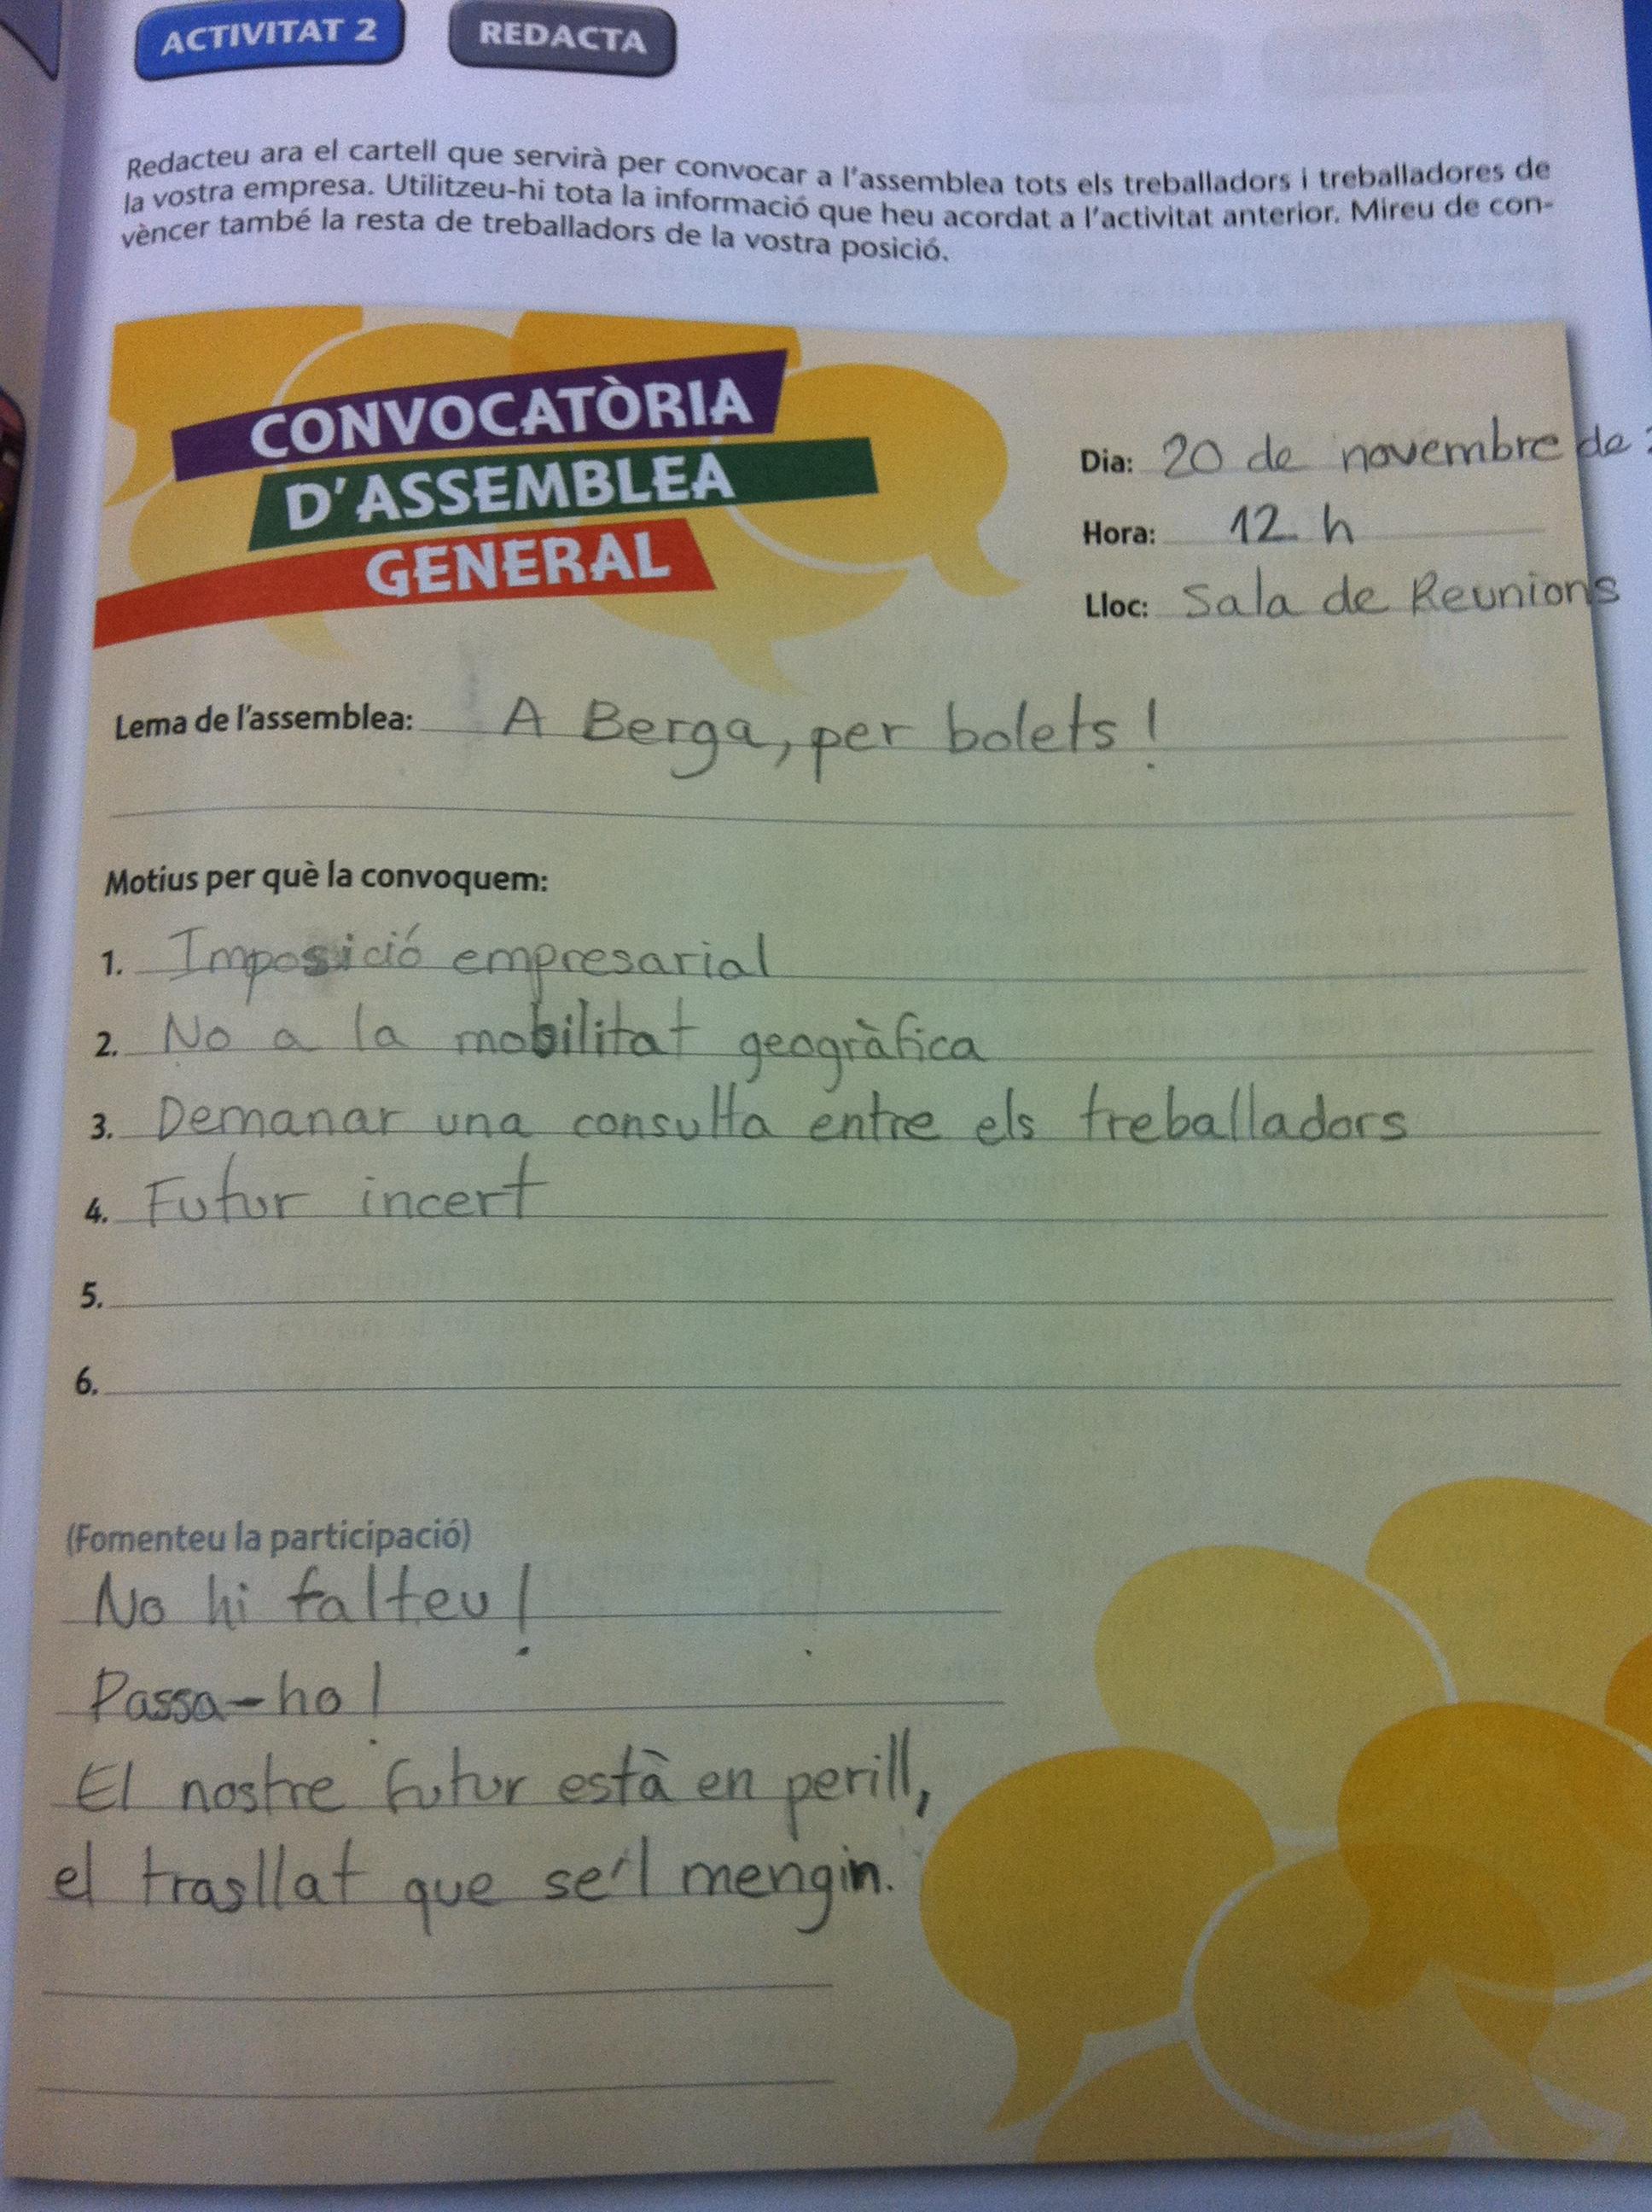 ACTIVITAT 2 REDACTA
Redacteu ara el cartell que servirà per convocar a l'assemblea tots els treballadors i treballadores de
la vostra empresa. Utilitzeu-hi tota la informació que heu acordat a l'activitat anterior. Mireu de con-
vèncer també la resta de treballadors de la vostra posició.
CONVOCATÒRIA
D'ASSEMBLEA
GENERAL
Dia: 20 de novembre de
Hora: 12 h
Lloc: Sala de Reunions
Lema de l'assemblea: A Berga, per bolets!
Motius per què la convoquem:
1. Imposició empresarial
2. No a la mobilitat geogràfica
3. Demanar una consulta entre els treballadors
4. Futur incert
5.
6.
(Fomenteu la participació)
No hi falteu!
Passa-ho!
El nostre futur està en perill,
el trasllat que se'l mengin.